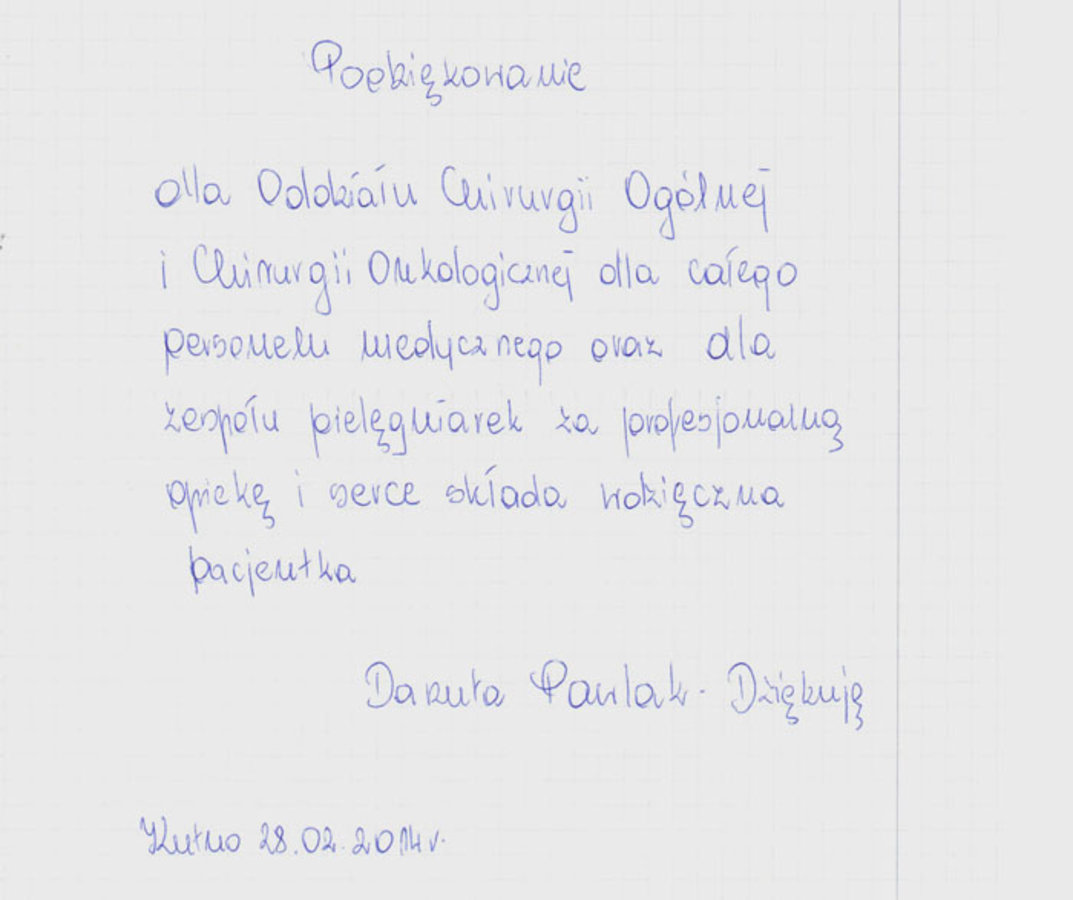 Podziękowanie
dla Oddziału Chirurgii Ogólnej
i Chirurgii Onkologicznej dla całego
personelu medycznego oraz dla
zespołu pielęgniarek za profesjonalną
opiekę i serce składa wdzięczna
pacjentka
Danuta Pawlak. Dziękuję
Kutno 28.02.2014r.